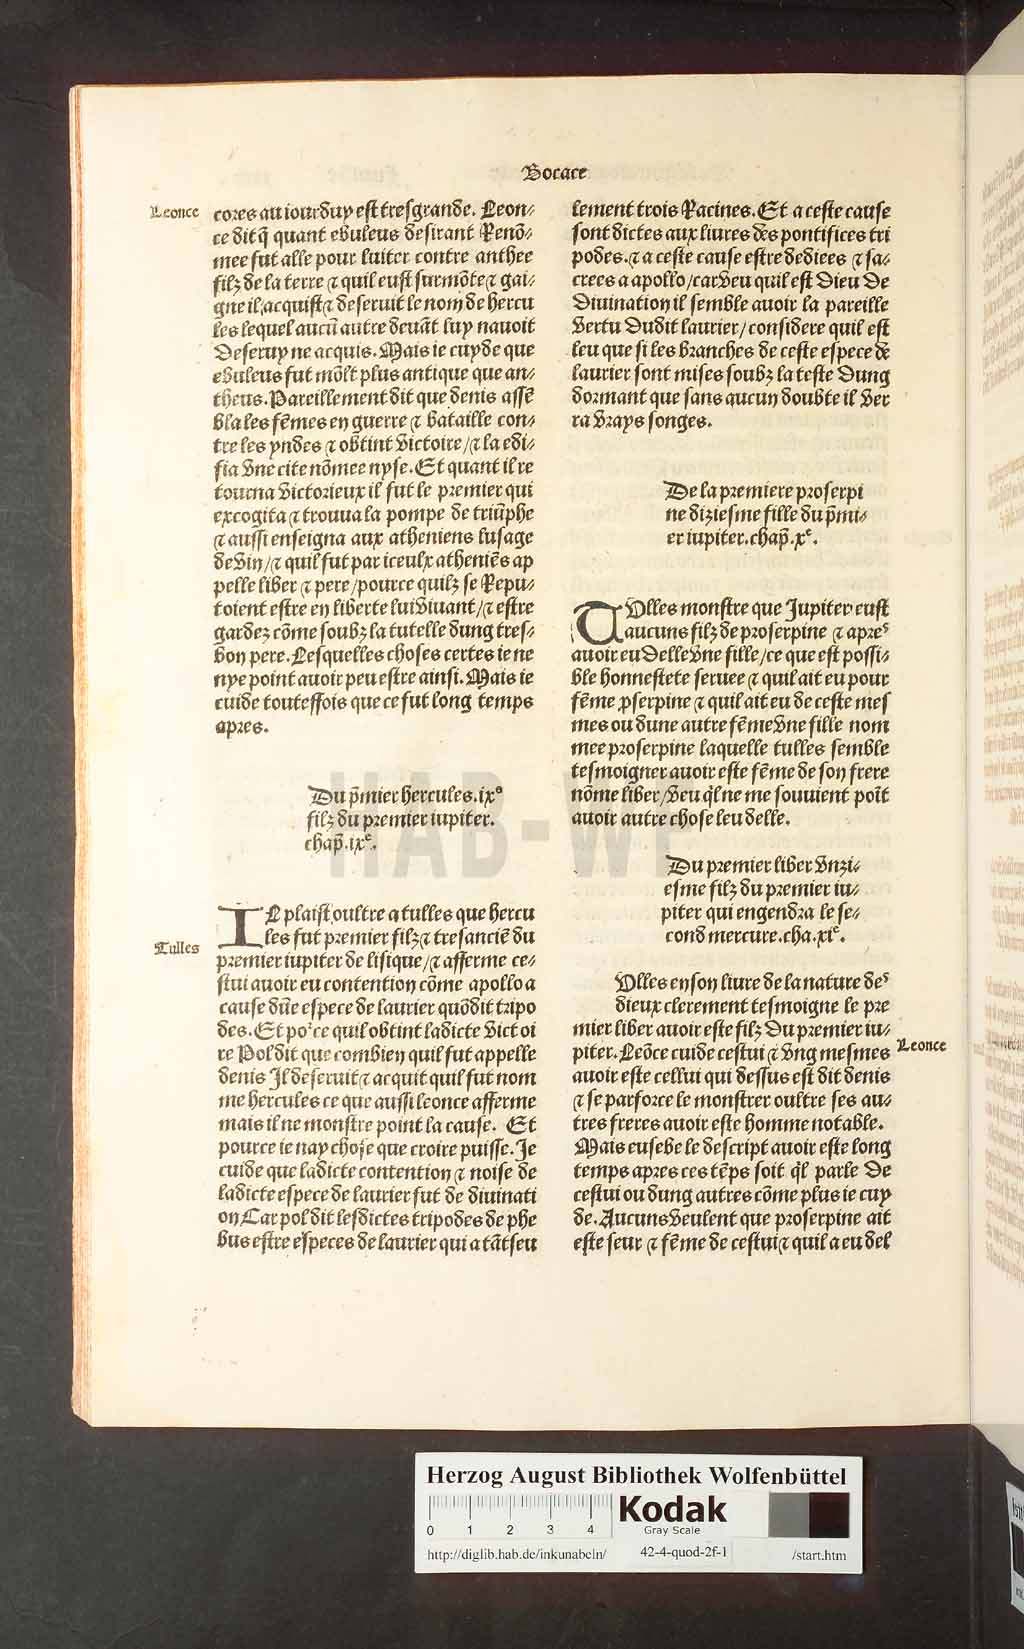 Bocace
Leonce
cores au iourduy est tresgrande. Leon-
ce dit q̃ quant ebuleus desirant Renõ-
mee fut alle pour luiter contre anthee
filz de la terre ⁊ quil eust surmõte ⁊ gai-
gne il acquist ⁊ deseruit le nom de hercu
les lequel aucũ autre deuãt luy nauoit
deseruy ne acquis. Mais ie cuyde que
ebuleus fut mõlt plus antique que an-
theus. Pareillement dit que denis assẽ
bla les fẽmes en guerre ⁊ bataille con-
tre les yndes ⁊ obtint victoire/⁊ la edi-
fia vne cite nõmee nyse. Et quant il re
tourna victorieux il fut le premier qui
excogita ⁊ trouua la pompe de triũphe
⁊ aussi enseigna aux atheniens lusage
de vin/⁊ quil fut par iceulx atheniẽs ap
pelle liber ⁊ pere/pource quilz se Repu-
toient estre en liberte lui viuant/⁊ estre
gardez cõme soubz la tutelle dung tres-
bon pere. Lesquelles choses certes ie ne
nye point auoir peu estre ainsi. Mais ie
cuide touteffois que ce fut long temps
apres.
Du p̃mier hercules. ixᵉ
filz du premier iupiter.
chap̃. ixᵉ.
Tulles
IL plaist oultre a tulles que hercu
les fut premier filz ⁊ tresanciẽ du
premier iupiter de lisique/⁊ afferme ce-
stui auoir eu contention cõme apollo a
cause dũe espece de laurier quõdit tripo
des. Et poᵘʳce quil obtint ladicte victoi
re Pol dit que combien quil fut appelle
denis Il deseruit ⁊ acquit quil fut nom
me hercules ce que aussi leonce afferme
mais il ne monstre point la cause. Et
pource ie nay chose que croire puisse. Je
cuide que ladicte contention ⁊ noise de
ladicte espece de laurier fut de diuinati
on Car pol dit lesdictes tripodes de phe
bus estre especes de laurier qui a tãt seu
lement trois Racines. Et a ceste cause
sont dictes aux liures des pontifices tri
podes. ⁊ a ceste cause estre dediees ⁊ sa-
crees a apollo/car veu quil est Dieu De
Diuination il semble auoir la pareille
vertu Dudit laurier/considere quil est
leu que si les branches de ceste espece de
laurier sont mises soubz la teste Dung
dormant que sans aucun doubte il ver
ra vrays songes.
De la premiere proserpi
ne diziesme fille du p̃mi-
er iupiter. chap̃. xᵉ.
TVlles monstre que Jupiter eust
aucuns filz de proserpine ⁊ apreˢ
auoir eu Delle vne fille/ce que est possi-
ble honnestete seruee ⁊ quil ait eu pour
fẽme ꝓserpine ⁊ quil ait eu de ceste mes
mes ou dune autre fẽme vne fille nom
mee proserpine laquelle tulles semble
tesmoigner auoir este fẽme de son frere
nõme liber/veu q̃l ne me souuient poĩt
auoir autre chose leu delle.
Du premier liber vnzi-
esme filz du premier iu-
piter qui engendra le se-
cond mercure. cha. xiᵉ.
Vlles en son liure de la nature deˢ
dieux clerement tesmoigne le pre
mier liber auoir este filz Du premier iu-
piter. Leõce cuide cestui ⁊ vng mesmes
auoir este cellui qui dessus est dit denis
⁊ se parforce le monstrer oultre ses au-
tres freres auoir este homme notable.
Mais eusebe le descript auoir este long
temps apres ces tẽps soit q̃l parle De
cestui ou dung autres cõme plus ie cuy
de. Aucuns veulent que proserpine ait
este seur ⁊ fẽme de cestui ⁊ quil a eu del
Leonce
HAB-WF
Herzog August Bibliothek Wolfenbüttel
0 1 2 3 4
Kodak
Gray Scale
http://diglib.hab.de/inkunabeln/ 42-4-quod-2f-1 /start.htm